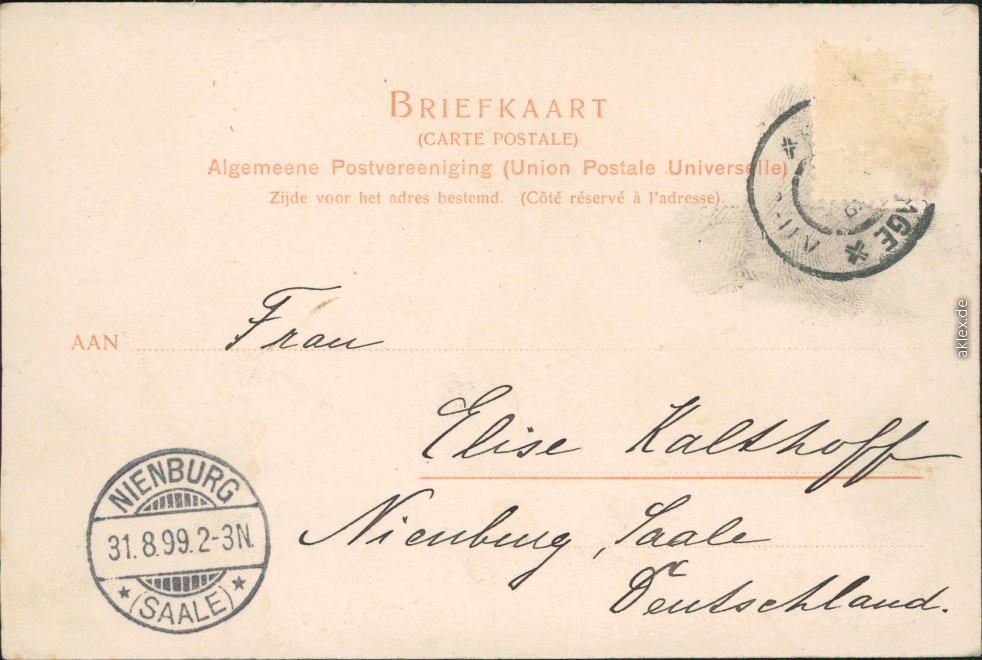 BRIEFKAART
(CARTE POSTALE)
Algemeene Postvereeniging (Union Postale Universelle)
Zijde voor het adres bestemd. (Côté réservé à l'adresse).
AGE
AAN Frau
Elise Kalthoff
Nienburg, Saale
Deutschland.
NIENBURG
31.8.99.2-3N.
(SAALE)
aklex.de